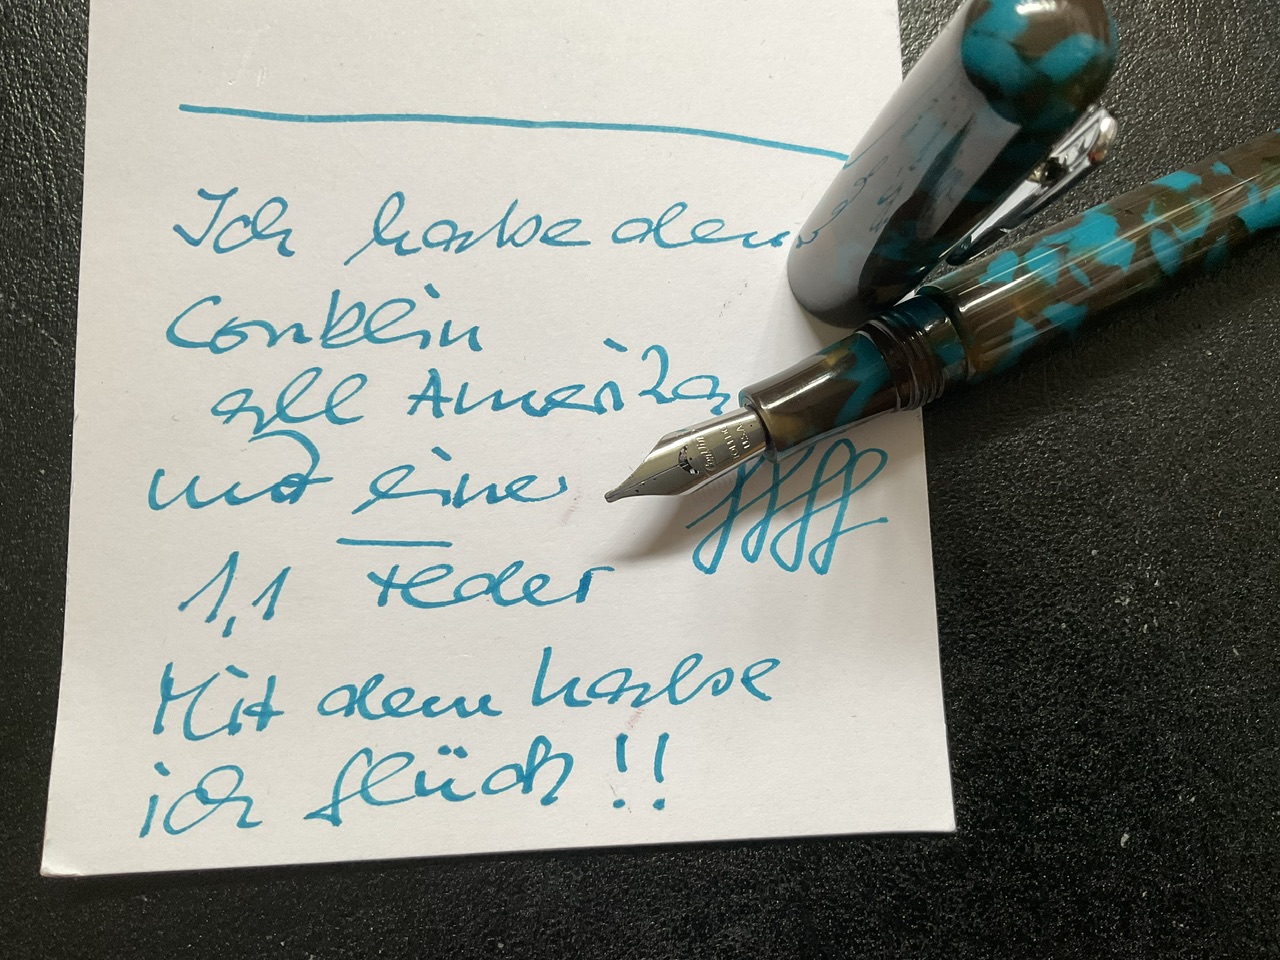 Ich habe den
Conklin
all America
und eine
1,1 Feder
Mit dem habe
ich glück !!